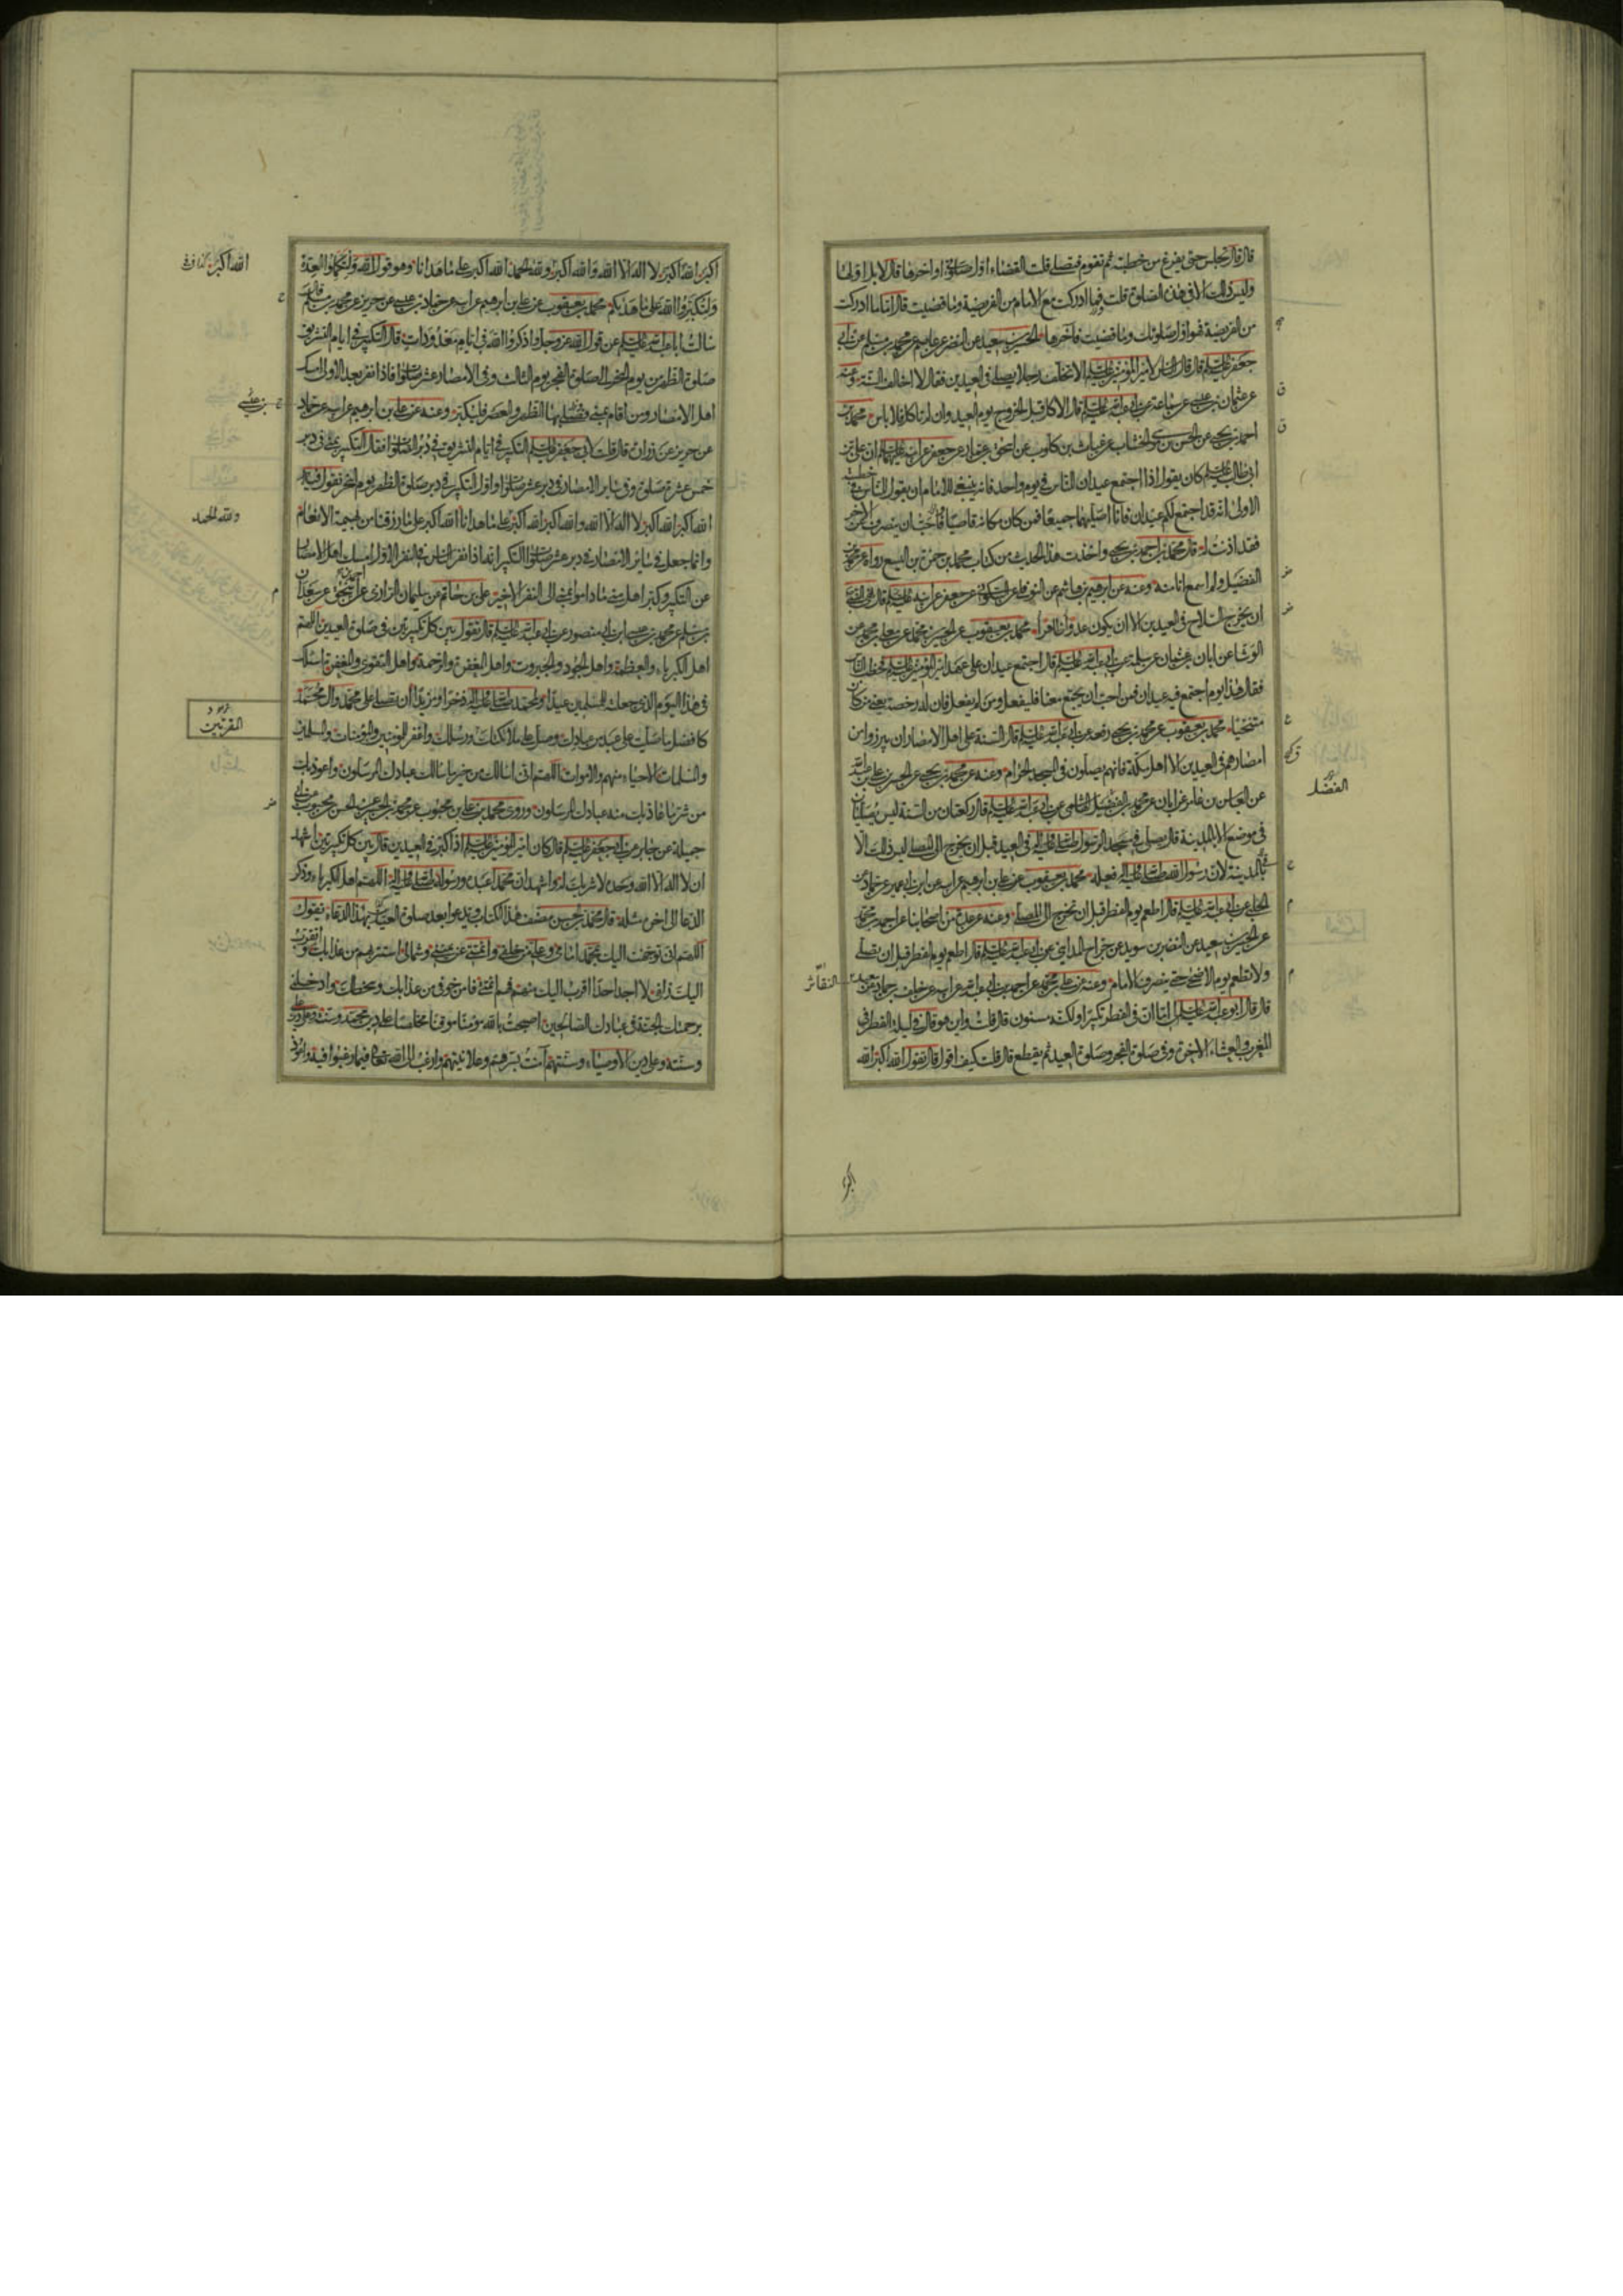 قال قال تجلس حتى يفرغ من خطبته ثم تقوم فتصلي قلت القضاء اول صلوتي او اخرها قال لا بل اولها
وليس ذلك الا في هذه الصلوة قلت فما ادركت مع الامام من الفريضة وما قضيت قال اما ما ادركت
من الفريضة فهو اول صلوتك وما قضيت فاخرها الحسين بن سعيد عن النضر عن عاصم عن محمد بن مسلم عن ابي
جعفر عليه السلم قال قال الناس لامير المؤمنين عليه السلم الا تخلف رجلا يصلي في العيدين فقال لا اخالف السنة وعنه
عن عثمان بن عيسى عن سماعة عن ابي عبد الله عليه السلم قال الاكل قبل الخروج يوم العيد وان لم تاكل فلا باس محمد بن
احمد بن يحيى عن الحسن بن موسى الخشاب عن غياث بن كلوب عن اسحق بن عمار عن جعفر عن ابيه عليهما السلم ان علي بن
ابي طالب عليه السلم كان يقول اذا اجتمع عيدان للناس في يوم واحد فانه ينبغي للامام ان يقول للناس في خطبته
الاولى انه قد اجتمع لكم عيدان فانا اصليهما جميعا فمن كان مكانه قاصيا فاحب ان ينصرف عن الاخر
فقد اذنت له قال محمد بن احمد بن يحيى واخذت هذا الحديث من كتاب محمد بن حمزة بن اليسع رواه عن محمد بن
الفضيل ولم اسمع انا منه وعنه عن ابرهيم بن هاشم عن النوفلي عن السكوني عن جعفر عن ابيه عليه السلم قال نهى النبي
ان يخرج السلاح في العيدين الا ان يكون عدو ظاهرا محمد بن يعقوب عن الحسين بن محمد عن معلى بن محمد عن
الوشا عن ابان بن عثمان عن سلمة عن ابي عبد الله عليه السلم قال اجتمع عيدان على عهد امير المؤمنين عليه السلم فخطب الناس
فقال هذا يوم اجتمع فيه عيدان فمن احب ان يجمع معنا فليفعل ومن لم يفعل فان له رخصة يعني من كان
متنحيا محمد بن يعقوب عن محمد بن يحيى رفعه عن ابي عبد الله عليه السلم قال السنة على اهل الامصار ان يبرزوا من
امصارهم في العيدين الا اهل مكة فانهم يصلون في المسجد الحرام وعنه عن محمد بن يحيى عن الحسن بن علي بن عبد الله
عن العباس بن عامر عن ابان عن محمد بن الفضل الهاشمي عن ابي عبد الله عليه السلم قال ركعتان من السنة ليس يصليان
في موضع الا بالمدينة قال يصلي في مسجد الرسول صلى الله عليه واله في العيد قبل ان يخرج الى المصلى ليس ذلك الا
بالمدينة لان رسول الله صلى الله عليه واله فعله محمد بن يعقوب عن علي بن ابرهيم عن ابيه عن ابن ابي عمير عن حماد عن
الحلبي عن ابي عبد الله عليه السلم قال اطعم يوم الفطر قبل ان تخرج الى المصلى وعنه عن عدة من اصحابنا عن احمد بن محمد
عن الحسين بن سعيد عن النضر بن سويد عن جراح المدايني عن ابي عبد الله عليه السلم قال اطعم يوم الفطر قبل ان تصلي
ولا تطعم يوم الاضحى حتى ينصرف الامام وعنه عن علي بن محمد عن احمد بن ابي عبد الله عن ابيه عن خلف بن حماد عن سعيد
قال قال ابو عبد الله عليه السلم لي اما ان في الفطر تكبيرا ولكنه مسنون قال قلت واين هو قال في ليلة الفطر في
المغرب والعشاء الاخرة وفي صلوة الفجر وصلوة العيد ثم يقطع قال قلت كيف اقول قال تقول الله اكبر الله
الفضل
النقاش
اكبر
اكبر الله اكبر لا اله الا الله والله اكبر ولله الحمد الله اكبر على ما هدانا وهو قول الله ولتكملوا العدة
ولتكبروا الله على ما هديكم محمد بن يعقوب عن علي بن ابرهيم عن ابيه عن حماد بن عيسى عن حريز عن محمد بن مسلم قال
سالت ابا عبد الله عليه السلم عن قول الله عز وجل واذكروا الله في ايام معدودات قال التكبير في ايام التشريق
صلوة الظهر من يوم النحر الى صلوة الفجر يوم الثالث وفي الامصار عشر صلوات فاذا نفر بعد الاولى امسك
اهل الامصار ومن اقام بمنى فصلى بها الظهر والعصر فليكبر وعنه عن علي بن ابرهيم عن ابيه عن حماد
عن حريز عن زرارة قال قلت لابي جعفر عليه السلم التكبير في ايام التشريق في دبر الصلوات فقال التكبير بمنى في دبر
خمس عشرة صلوة وفي ساير الامصار في دبر عشر صلوات اول التكبير في دبر صلوة الظهر يوم النحر تقول فيه
الله اكبر الله اكبر لا اله الا الله والله اكبر الله اكبر على ما هدانا الله اكبر على ما رزقنا من بهيمة الانعام
وانما جعل في ساير الامصار في دبر عشر صلوات التكبير انه اذا نفر الناس في النفر الاول امسك اهل الامصار
عن التكبير وكبر اهل منى ما داموا بمنى الى النفر الاخير علي بن حاتم عن سليمان الرازي عن احمد بن اسحق عن سعدان
بن مسلم عن محمد بن عيسى ابن ابي منصور عن ابي عبد الله عليه السلم قال تقول بين كل تكبيرتين في صلوة العيدين اللهم
اهل الكبرياء والعظمة واهل الجود والجبروت واهل العفو والرحمة واهل التقوى والمغفرة اسئلك
في هذا اليوم الذي جعلته للمسلمين عيدا ولمحمد صلى الله عليه واله ذخرا ومزيدا ان تصلي على محمد وال محمد
كافضل ما صليت على عبد من عبادك وصل على ملائكتك ورسلك واغفر للمؤمنين والمؤمنات والمسلمين
والمسلمات الاحياء منهم والاموات اللهم اني اسالك من خير ما سالك عبادك المرسلون واعوذ بك
من شر ما عاذ بك منه عبادك المرسلون وروى محمد بن علي بن محبوب عن محمد بن الحسين عن الحسن بن محبوب عن ابي
جميلة عن جابر عن ابي جعفر عليه السلم قال كان امير المؤمنين عليه السلم اذا كبر في العيدين قال بين كل تكبيرتين اشهد
ان لا اله الا الله وحده لا شريك له واشهد ان محمدا عبده ورسوله صلى الله عليه واله اللهم اهل الكبرياء وذكر
الدعا الى اخره مثله قال محمد بن الحسن مصنف هذا الكتاب ويدعو بعد صلوة العيد بهذا الدعاء تقول
اللهم اني توجهت اليك بمحمد امامي وعلي من خلفي وائمتي عن يميني وشمالي استتر بهم من عذابك واتقرب
اليك زلفى لا اجد احدا اقرب اليك منهم فهم ائمتي فامن خوفي من عذابك وسخطك وادخلني
برحمتك الجنة في عبادك الصالحين اصبحت بالله مؤمنا موقنا مخلصا على دين محمد وسنته وعلى دين علي
وسنته وعلى دين الاوصياء وسنتهم امنت بسرهم وعلانيتهم وارغب الى الله تعالى فيما رغبوا فيه واعوذ
الله اكبر
بن عيسى
ولله الحمد
المقربين